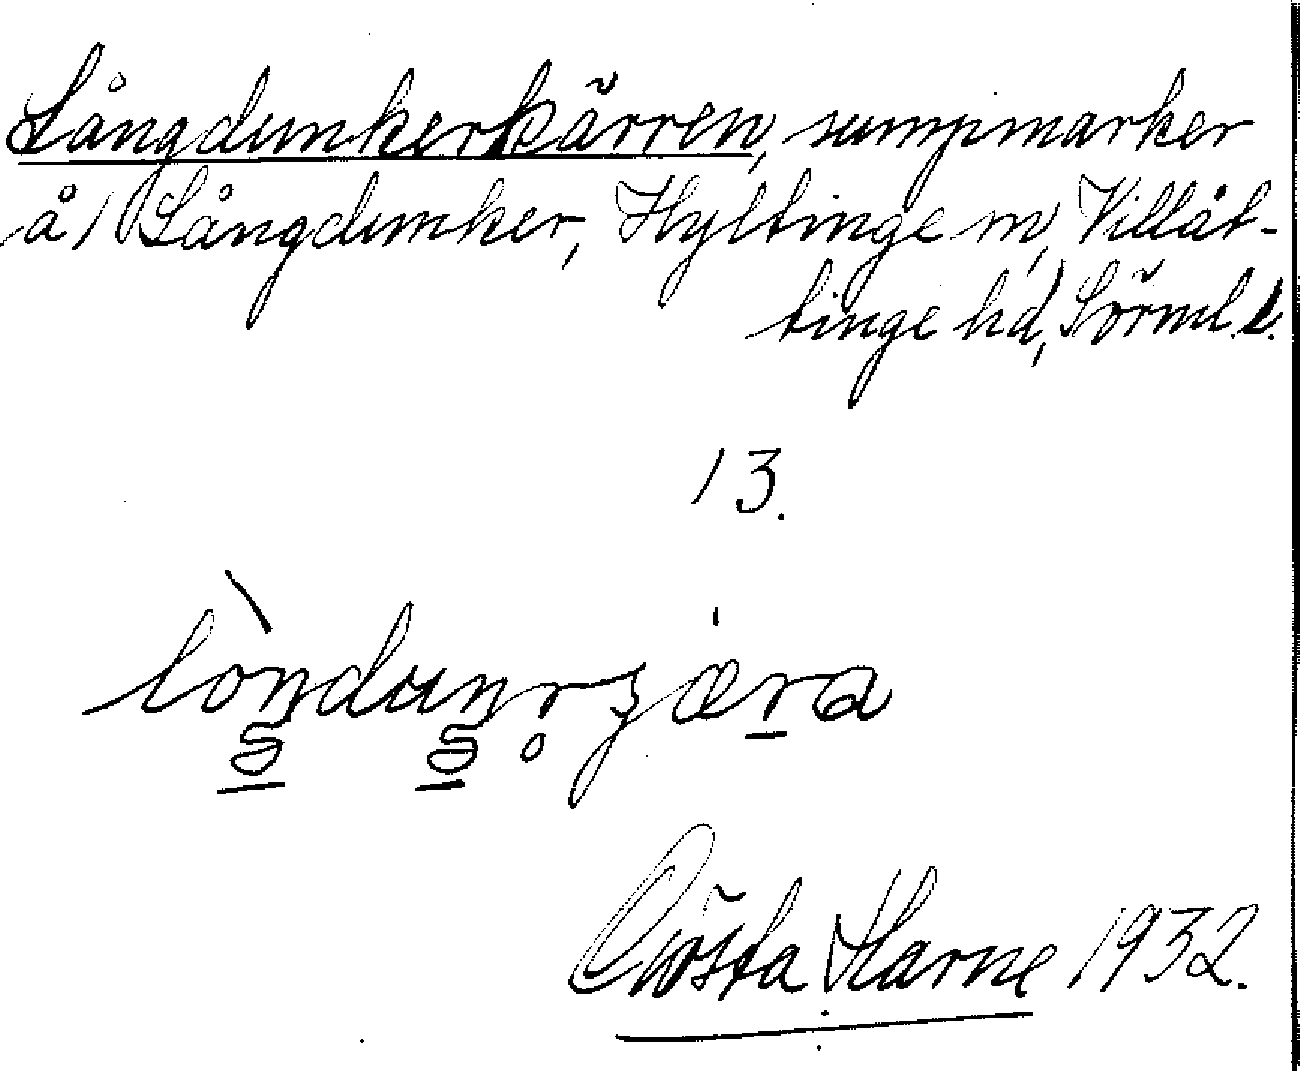 Långdunkerkärren, sumpmarker
å Långdunker, Hyltinge sn, Villåt-
tinge hd, Sörml. l.
13.
Gösta Harne 1932.